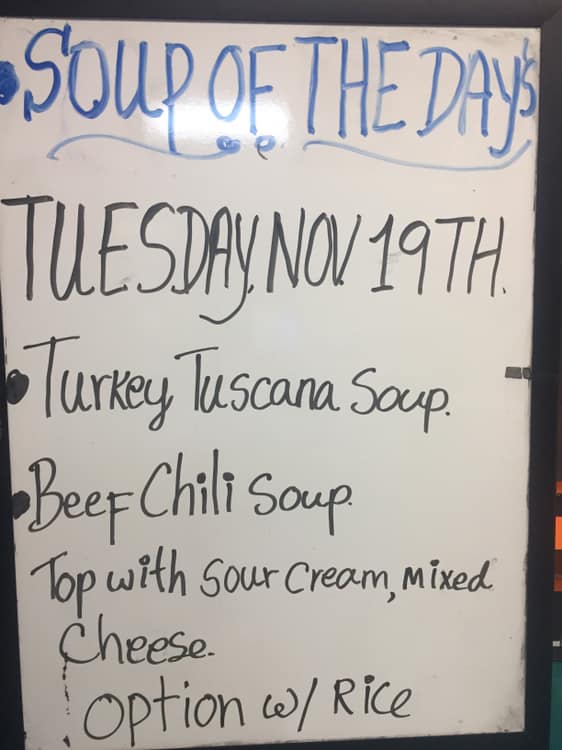 • SOUP OF THE DAY'S
TUESDAY. NOV. 19TH.
• Turkey Tuscana Soup.
• Beef Chili Soup.
Top with Sour Cream, Mixed
Cheese.
Option w/ Rice